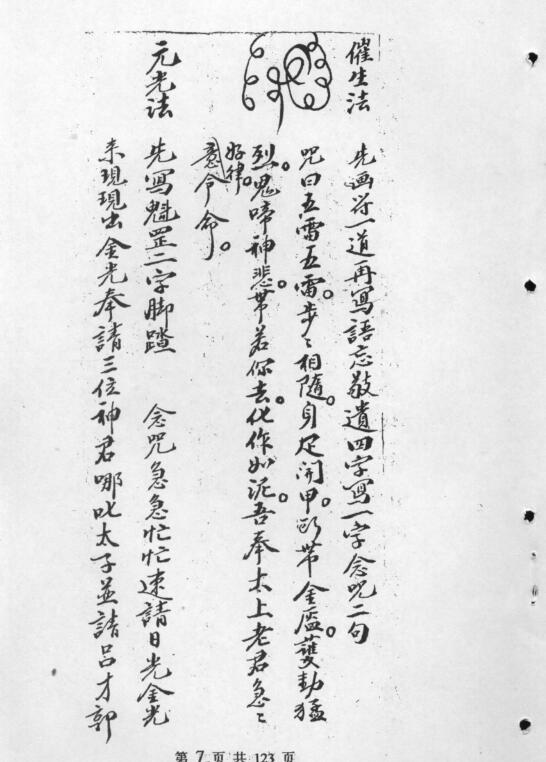 催生法
先画符一道再寫語忘敬遺四字寫一字念咒二句
咒曰五雷五雷。步〻相隨。身足開甲。頭帶金盔。護勃猛
烈。鬼啼神悲。帶若你去。化作如泥。吾奉太上老君急〻
如律。
意令命。
元光法
先寫魁罡二字脚踏 念咒急急忙忙速請日光金光
来現現出金光奉請三位神君哪叱太子並請吕才郭
第 7 页 共 123 页